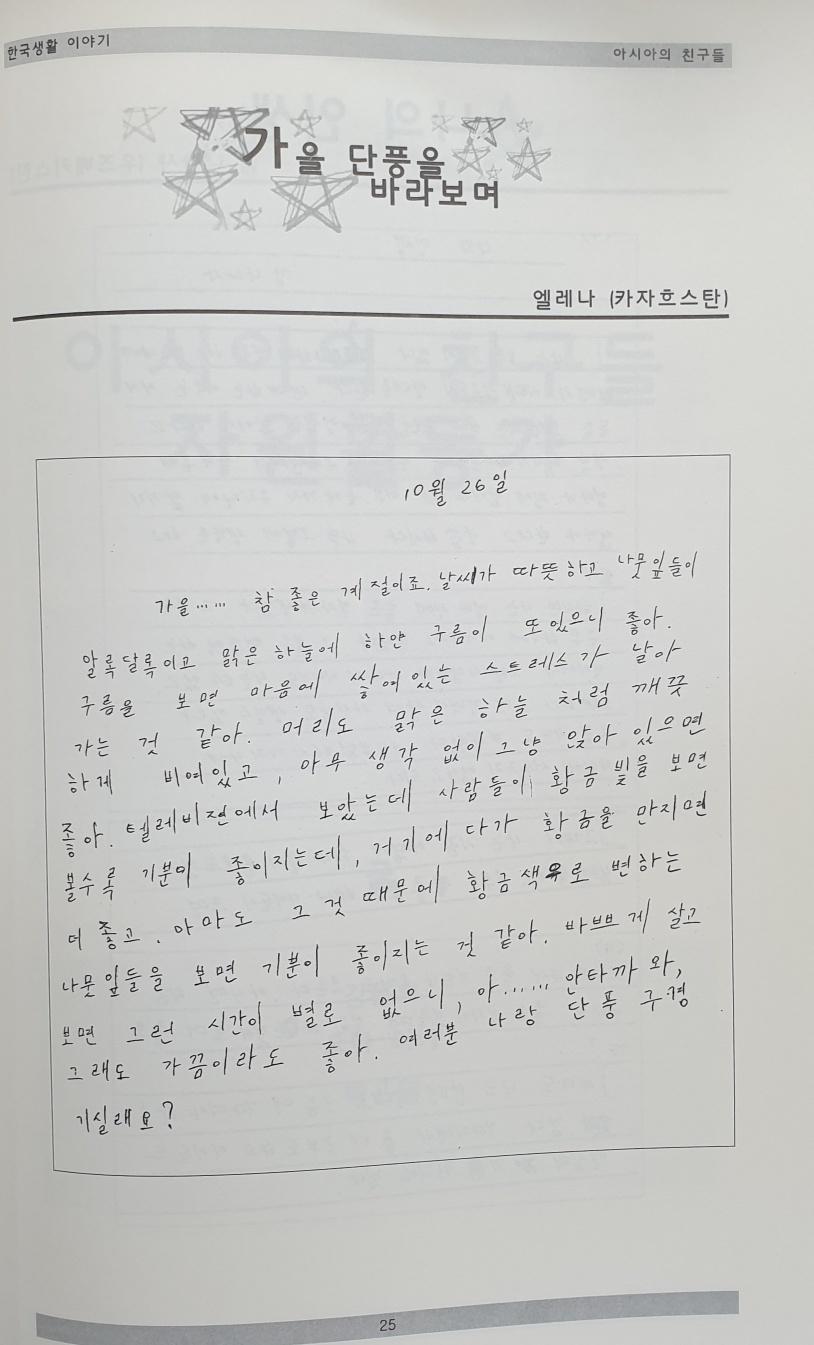 한국생활 이야기
아시아의 친구들
가을 단풍을
바라보며
엘레나 (카자흐스탄)
10월 26일
가을...... 참 좋은 계절이죠. 날씨가 따뜻하고 나뭇잎들이
알록달록이고 맑은 하늘에 하얀 구름이 또있으니 좋아.
구름을 보면 마음에 쌓여있는 스트레스가 날아
가는 것 같아. 머리도 맑은 하늘 처럼 깨끗
하게 비여있고, 아무 생각 없이 그냥 앉아 있으면
좋아. 텔레비젼에서 보았는데 사람들이 황금 빛을 보면
볼수록 기분이 좋이지는데, 거기에 다가 황금을 만지면
더 좋고. 아마도 그것 때문에 황금색으로 변하는
나뭇잎들을 보면 기분이 좋이지는 것 같아. 바쁘게 살고
보면 그런 시간이 별로 없으니, 아...... 안타까와,
그래도 가끔이라도 좋아. 여러분 나랑 단풍 구경
기실래요?
25